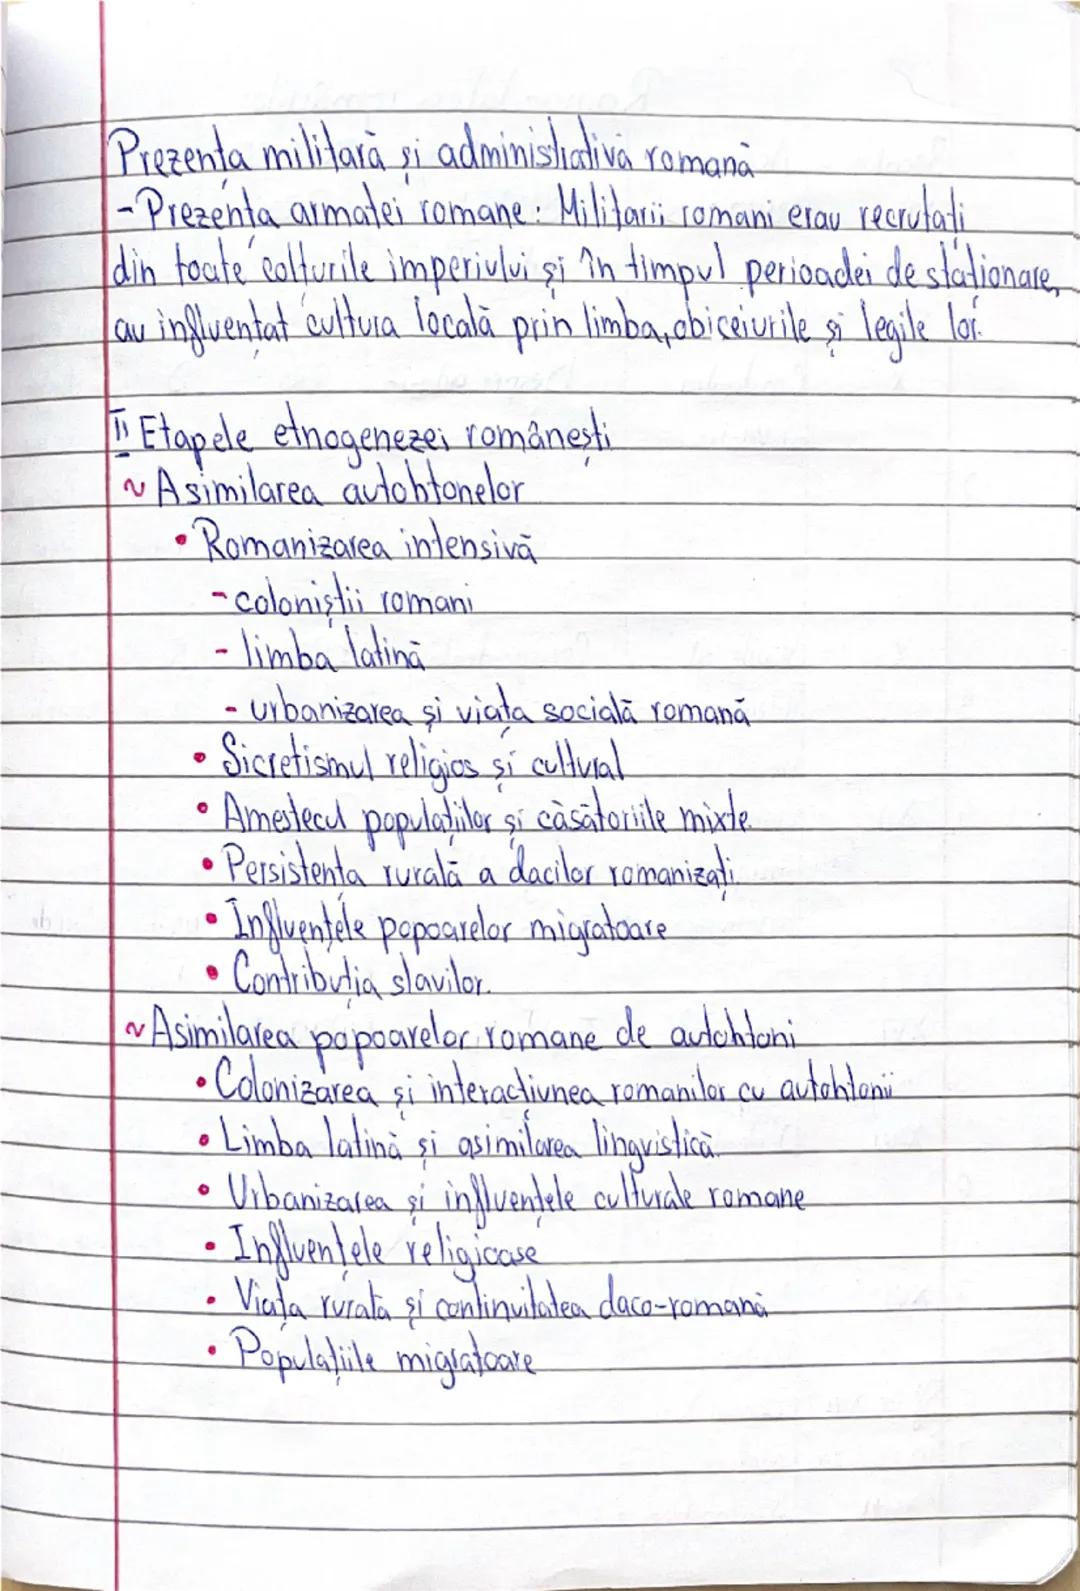 Prezența militară și administrativă romană
-Prezența armatei romane: Militarii romani erau recrutați
din toate colțurile imperiului și în timpul perioadei de staționare,
au influențat cultura locală prin limba, obiceiurile și legile lor.
II Etapele etnogenezei românești
~ Asimilarea autohtonelor
• Romanizarea intensivă
- coloniștii romani
- limba latină
- urbanizarea și viața socială romană
• Sicretismul religios și cultural
• Amestecul populațiilor și căsătoriile mixte.
• Persistența rurală a dacilor romanizați.
• Influențele popoarelor migratoare
• Contribuția slavilor.
~ Asimilarea popoarelor romane de autohtoni
• Colonizarea și interacțiunea romanilor cu autohtonii
• Limba latină și asimilarea lingvistică.
• Urbanizarea și influențele culturale romane
• Influențele religioase
• Viața rurală și continuitatea daco-romană
• Populațiile migratoare